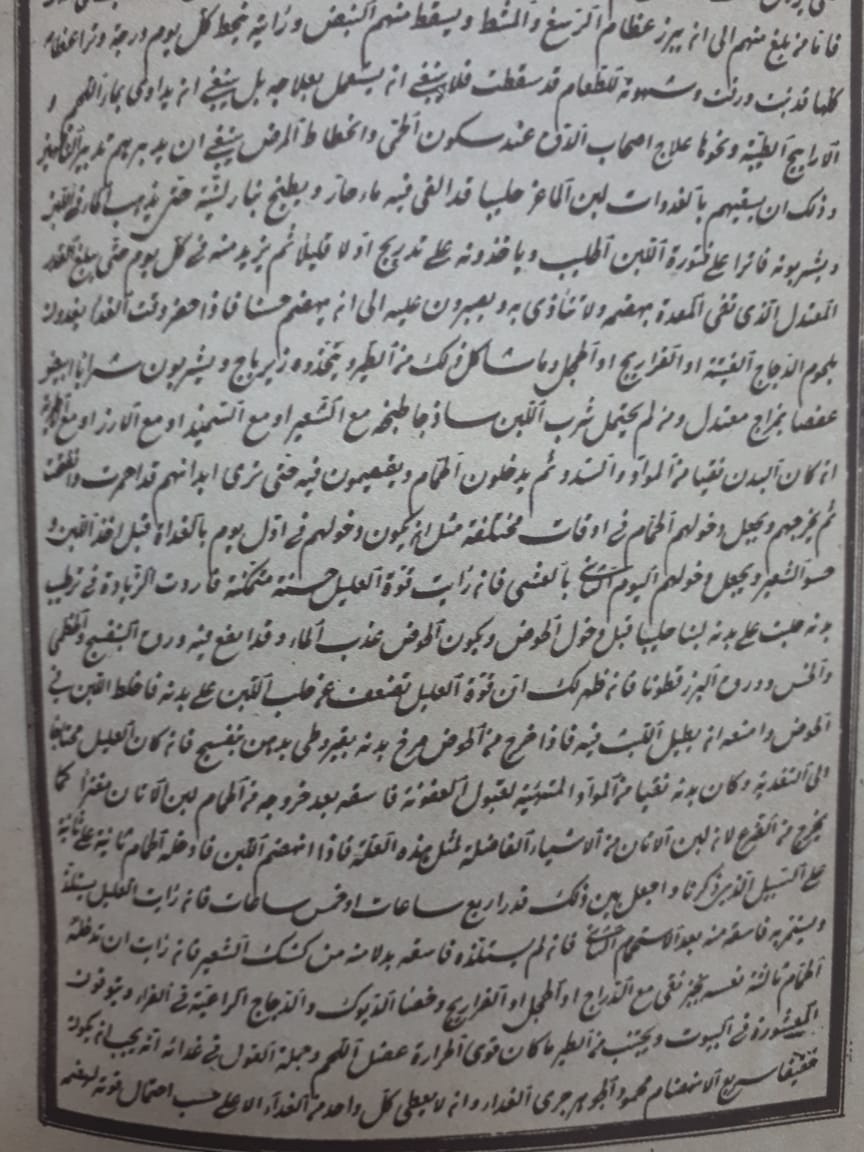 فاما من بلغ منهم الى ان يبرز عظام الرسغ والمشط ويسقط منهم النبض وزايته ينحط كل يوم درجة وترا عظام
كلها قد نبت ورقت وشهوته للطعام قد سقطت فلا ينبغى ان يشتغل بعلاجه بل ينبغى ان يداوى بماء اللحم و
الاراييح الطيبة ونحوها علاج اصحاب الدق عند سكون الحمى وانحطاط المرض ينبغى ان يدبرهم تدبير
وذلك ان يسقيهم بالغدوات لبن الماعز حليبا قد القى فيه ماء حار ويطبخ بنار لينة حتى يذهب الماء
ويشربونه فاترا على فتورة اللبن الحليب وياخذونه على تدريج اولا قليلا ثم يزيد منه فى كل يوم حتى يبلغ القدر
المعتدل الذى تفى المعدة بهضمه ولا تتاذى به ويصبرون عليه الى ان يهضم حسنا فاذا حضر وقت الغداء يغدون
بلحوم الدجاج الفتية او الفراريج او الحجل وما شاكل ذلك من الطير ويتخذوه زيرباج ويشربون شرابا ابيض
عفصا بمزاج معتدل ومن لم يحتمل شرب اللبن ساذجا طبخه مع الشعير او مع السميذ او مع الارز او مع
ان كان البدن نقيا من المواد والسدد ثم يدخلون الحمام ويقيمون فيه حتى ترى ابدانهم قد احمرت وانتفخت
ثم يخرجهم ويجعل دخولهم الحمام فى اوقات مختلفة مثل ان يكون دخولهم فى اول يوم بالغداة قبل اخذ اللبن و
حسو الشعير ويجعل دخولهم اليوم الثانى بالعشى فان رايت قوة العليل حسنة متمكنة فاردت الزيادة فى ترطيب
بدنه حلبت على بدنه لبنا حليبا قبل دخول الحوض ويكون الحوض عذب الماء وقد انقع فيه ورق البنفسج والخطمى
والخس وورق البزرقطونا فان ظهر لك ان قوة العليل تضعف عن حلب اللبن على بدنه فاخلط اللبن فى
الحوض وامنعه ان يطيل اللبث فيه فاذا خرج من الحوض مرخ بدنه بقيروطى بدهن بنفسج فان كان العليل محتاجا
الى التغذية وكان بدنه نقيا من المواد المتهيئة لقبول العفونة فاسقه بعد خروجه من الحمام لبن الاتان مفترا كما
يخرج من الضرع لان لبن الاتان من الاشياء الفاضلة لمثل هذه العلة فاذا انهضم اللبن فادخله الحمام ثانية
على السبيل الذى ذكرنا واجعل بين ذلك قدر اربع ساعات او خمس ساعات فان رايت العليل يستلذ
ويستمريه فاسقه منه بعد الاستحمام الثانى فان لم يستلذه فاسقه بدلا منه من كشك الشعير فان رايت ان تدخله
الحمام ثالثة نعسه بخبز نقى مع الدراج او الحجل او الفراريج وخصا الديوك والدجاج الراعية فى القراء ويتوقون
المحشورة فى البيوت ويجتنب من الطير ما كان قوى الحرارة عضل اللحم وجملة القول فى غذائه انه يجب ان يكون
خفيفا سريع الانهضام محمود الجوهر جرى الغداء وانه لا يعطى كل واحد من الغداء الا على حسب احتمال قوته لهضم